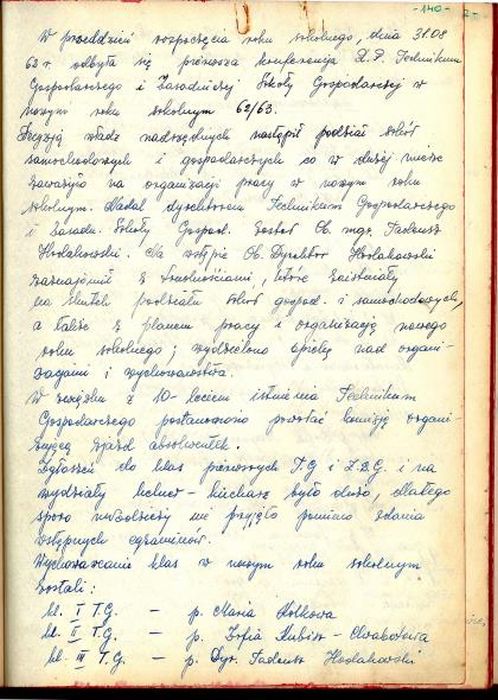 - 140 -
W przeddzień rozpoczęcia roku szkolnego, dnia 31.08
62 r. odbyła się pierwsza konferencja R.P. Technikum
Gospodarczego i Zasadniczej Szkoły Gospodarczej w
nowym roku szkolnym 62/63.
Decyzją władz nadrzędnych nastąpił podział szkół
samochodowych i gospodarczych co w dużej mierze
zaważyło na organizacji pracy w nowym roku
szkolnym. Nadal dyrektorem Technikum Gospodarczego
i Zasadn. Szkoły Gospod. został Ob. mgr. Tadeusz
Hodakowski. Na wstępie Ob. Dyrektor Hodakowski
zaznajomił z trudnościami, które zaistniały
na skutek podziału szkół gospod. i samochodowych,
a także z planem pracy i organizacją nowego
roku szkolnego; wydzielono opiekę nad organi-
zacjami i wychowawstwa.
W związku z 10-leciem istnienia Technikum
Gospodarczego postanowiono powołać komisję organi-
zującą zjazd absolwentek.
Zgłoszeń do klas pierwszych T.G i Z.S.G. i na
wydziały kelner - kucharz było dużo, dlatego
sporo młodzieży nie przyjęto pomimo zdania
wstępnych egzaminów.
Wychowawcami klas w nowym roku szkolnym
zostali:
kl. I T.G. - p. Maria Kotkowa
kl. II T.G. - p. Zofia Kubisz -
kl. III T.G. - p. Dyr. Tadeusz Hodakowski